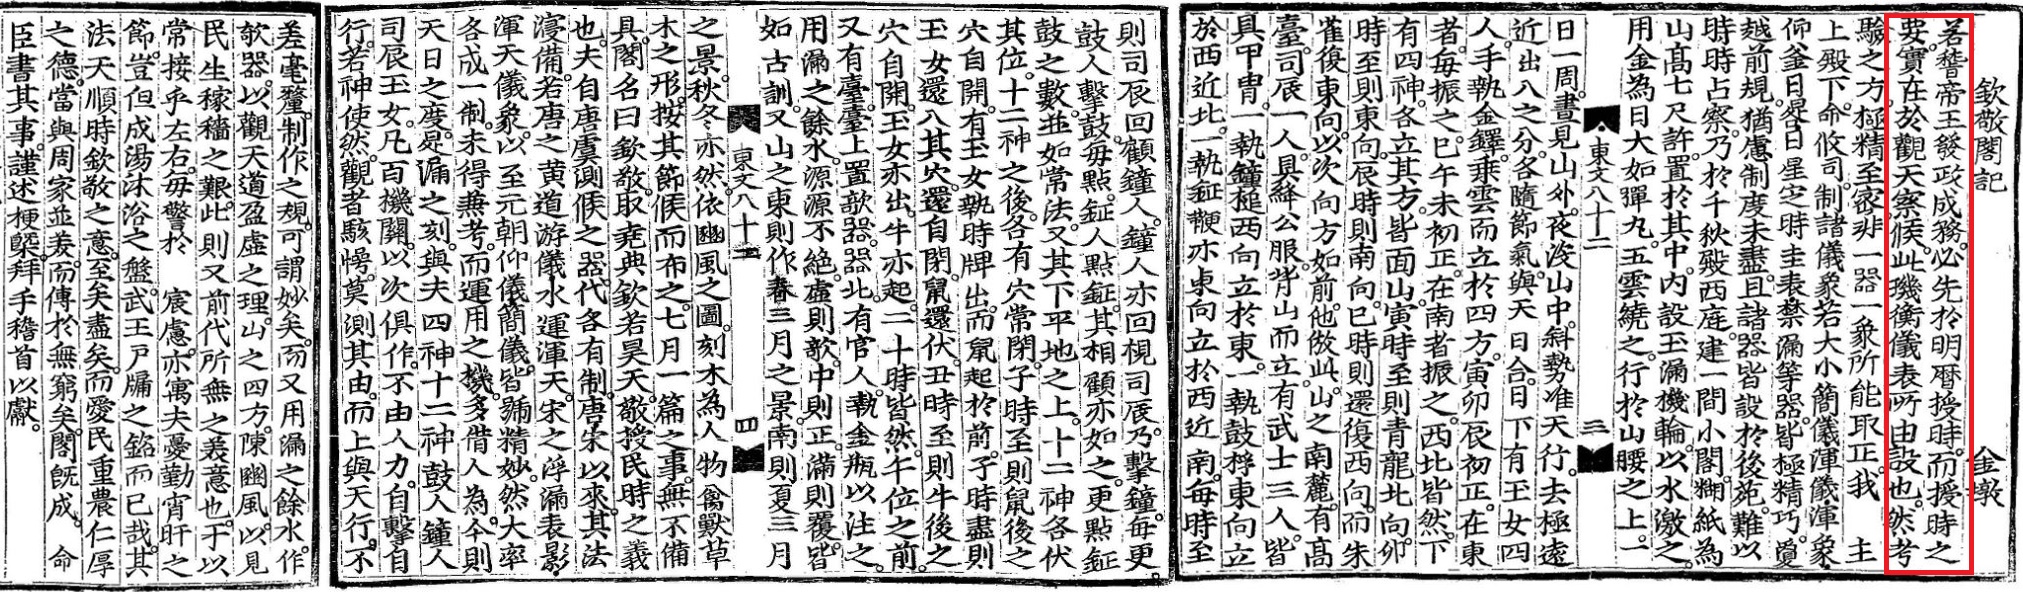 欽敬閣記 金墩
若稽帝王發政成務必先於明曆授時而授時之
要實在於觀天察候此璣衡儀表所由設也然考
驗之方極精至密非一器一象所能取正我 主
上殿下命攸司制諸儀象若大小簡儀渾儀渾象
仰釜日晷日星定時圭表禁漏等器皆極精巧敻
越前規猶慮制度未盡且諸器皆設於後苑難以
時時占察乃於千秋殿西庭建一間小閣糊紙為
山高七尺許置於其中內設玉漏機輪以水激之
用金為日大如彈丸五雲繞之行於山腰之上一
東文八十二 三
日一周晝見山外夜沒山中斜勢准天行去極遠
近出入之分各隨節氣與天 日合日下有玉女四
人手執金鐸乘雲而立於四方寅卯辰初正在東
者每振之巳午未初正在南者振之西北皆然下
有四神各立其方皆面山寅時至則青龍北向卯
時至則東向辰時則南向巳時則還復西向而朱
雀復東向以次向方如前他倣此山之南麓有高
臺司辰一人具絳公服背山而立有武士三人皆
具甲冑一執鐘槌西向立於東一執鼓桴東向立
於西近北一執鉦鞭亦東向立於西近南每時至
則司辰回顧鐘人鐘人亦回視司辰乃擊鐘每更
鼓人擊鼓每點鉦人點鉦其相顧亦如之更點鉦
鼓之數並如常法又其下平地之上十二神各伏
其位十二神之後各有穴常閉子時至則鼠後之
穴自開有玉女執時牌出而鼠起於前子時盡則
玉女還入其穴還自閉鼠還伏丑時至則牛後之
穴自開玉女亦出牛亦起二十時皆然午位之前
又有臺臺上置欹器器北有官人執金瓶以注之
用漏之餘水源源不絕虛則欹中則正滿則覆皆
如古訓又山之東則作春三月之景南則夏三月
東文八十二 四
之景秋冬亦然依豳風之圖刻木為人物禽獸草
木之形按其節候而布之七月一篇之事無不備
具閣名曰欽敬取堯典欽若昊天敬授民時之義
也夫自唐虞測候之器代各有制唐宋以來其法
寖備若唐之黃道游儀水運渾天宋之浮漏表影
渾天儀象以至元朝仰儀簡儀皆號精妙然大率
各成一制未得兼考而運用之機多借人為今則
天日之度晷漏之刻與夫四神十二神鼓人鐘人
司辰玉女凡百機關以次俱作不由人力自擊自
行若神使然觀者駭愕莫測其由而上與天行不
差毫釐制作之規可謂妙矣而又用漏之餘水作
欹器以觀天道盈虛之理山之四方陳豳風以見
民生稼穡之艱此則又前代所無之美意也于以
常接乎左右每警於 宸慮亦寓夫憂勤宵旰之
節豈但成湯沐浴之盤武王戶牖之銘而已哉其
法天順時欽敬之意至矣盡矣而愛民重農仁厚
之德當與周家並美而傳於無窮矣閣旣成 命
臣書其事謹述梗槩拜手稽首以獻